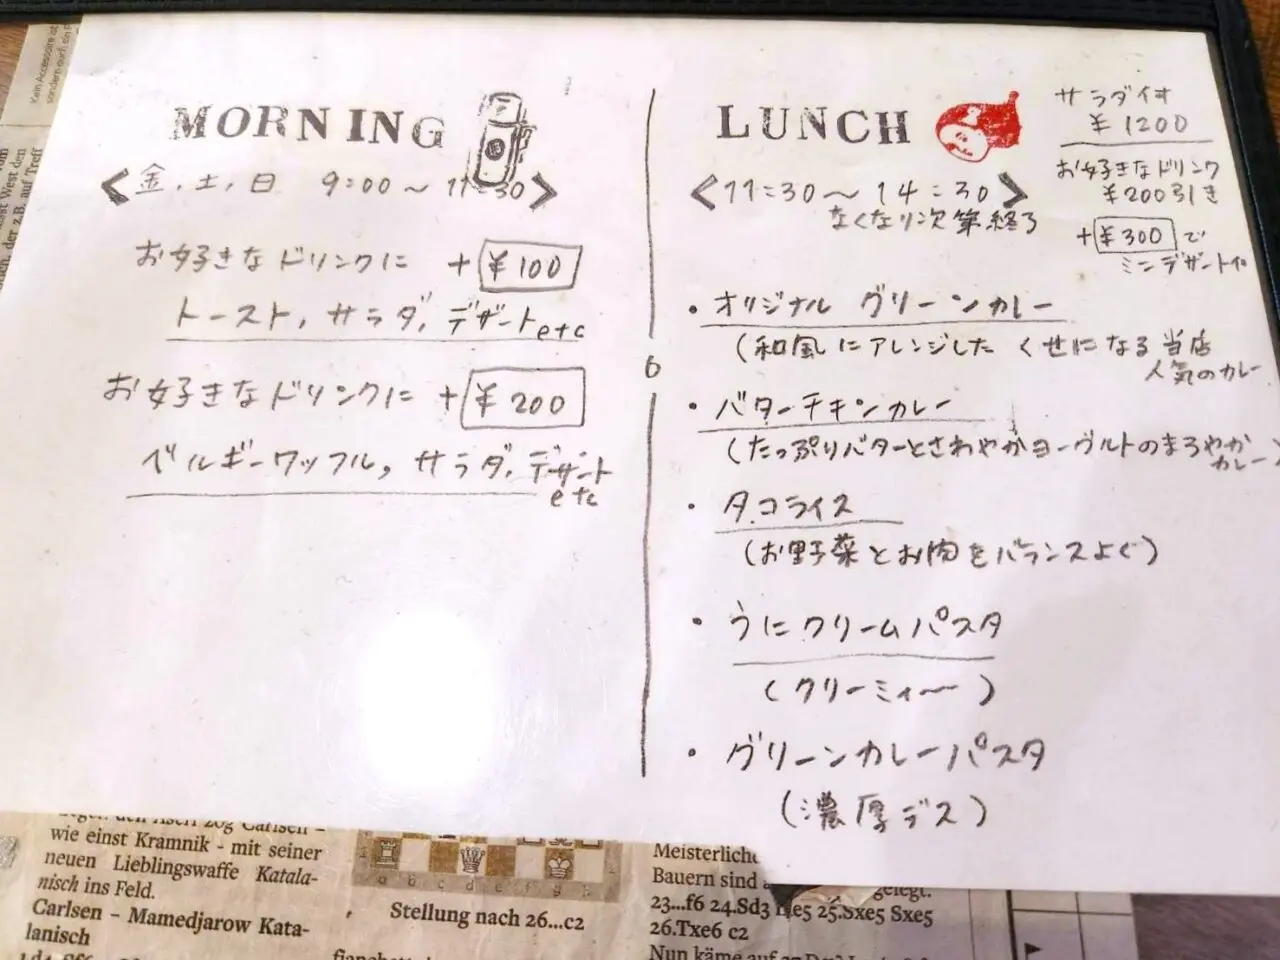 MORNING
< 金, 土, 日 9:00 ～ 11:30 >
お好きなドリンクに +¥100
トースト, サラダ, デザート etc
お好きなドリンクに +¥200
ベルギーワッフル, サラダ, デザート
etc
LUNCH
< 11:30 ～ 14:30 >
なくなり次第終了
サラダ付
¥1200
お好きなドリンク
¥200引き
+¥300で
ミニデザート付
・オリジナル グリーンカレー
(和風にアレンジした くせになる当店
人気のカレー
・バターチキンカレー
(たっぷりバターとさわやかヨーグルトのまろやか
カレー)
・タコライス
(お野菜とお肉をバランスよく)
・うにクリームパスタ
(クリーミィ～)
・グリーンカレーパスタ
(濃厚デス)
Kein Accessoire
sondern auch ein
West den
der z.B. auf Treff
Carlsen –
wie einst Kramnik - mit seiner
neuen Lieblingswaffe Katala-
nisch ins Feld.
Carlsen – Mamedjarow Kata-
lanisch
a b c d e f g h
Stellung nach 26...c2
Bauern sind gelegt.
23...f6 24.Sd3 25.Sxe5 Sxe5
26.Txe6 c2
Nun käme auf